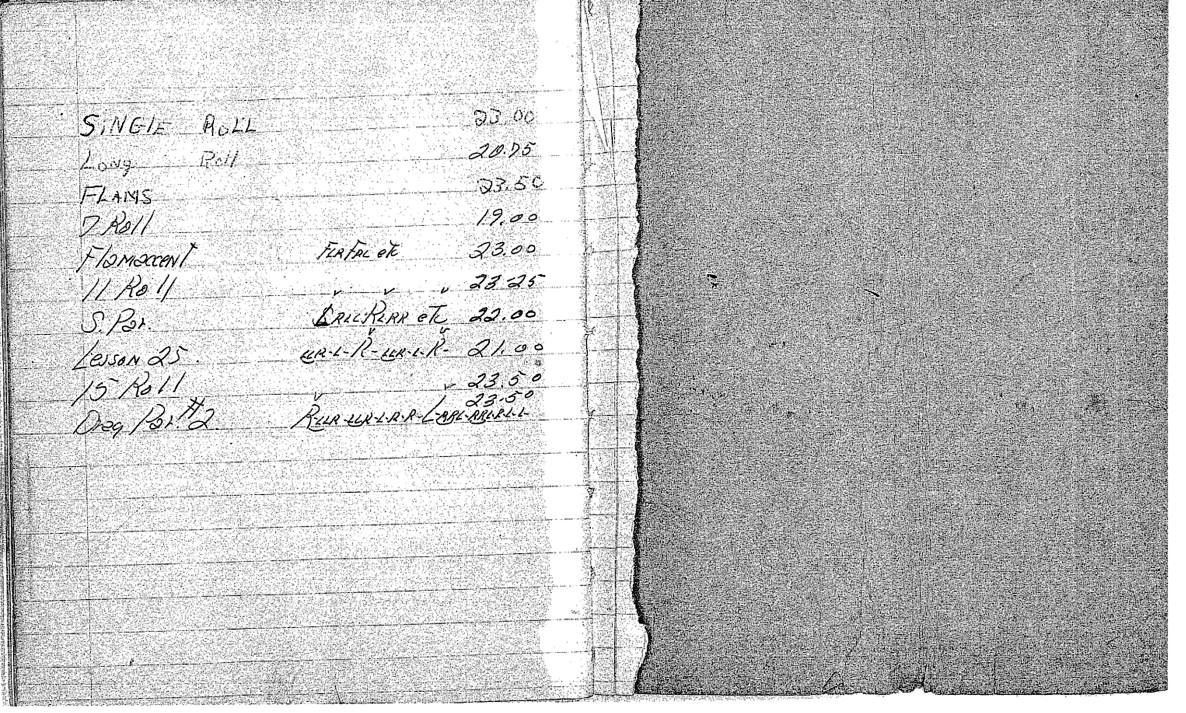 SINGLE ROLL 23.00
Long Roll 20.75
FLAMS 23.50
7 Roll 19.00
Flamaccent FLRFRL etc 23.00
11 Roll 〃 〃 〃 23.25
S. Par. LRLLRLRR etc 22.00
Lesson 25. LLR-L-R-LLR-L-R- 21.00
15 Roll 〃 23.50
Drag Par. #2 RLLR-LLR-L-R-R-LRRL-RRL-R-L-L 23.50